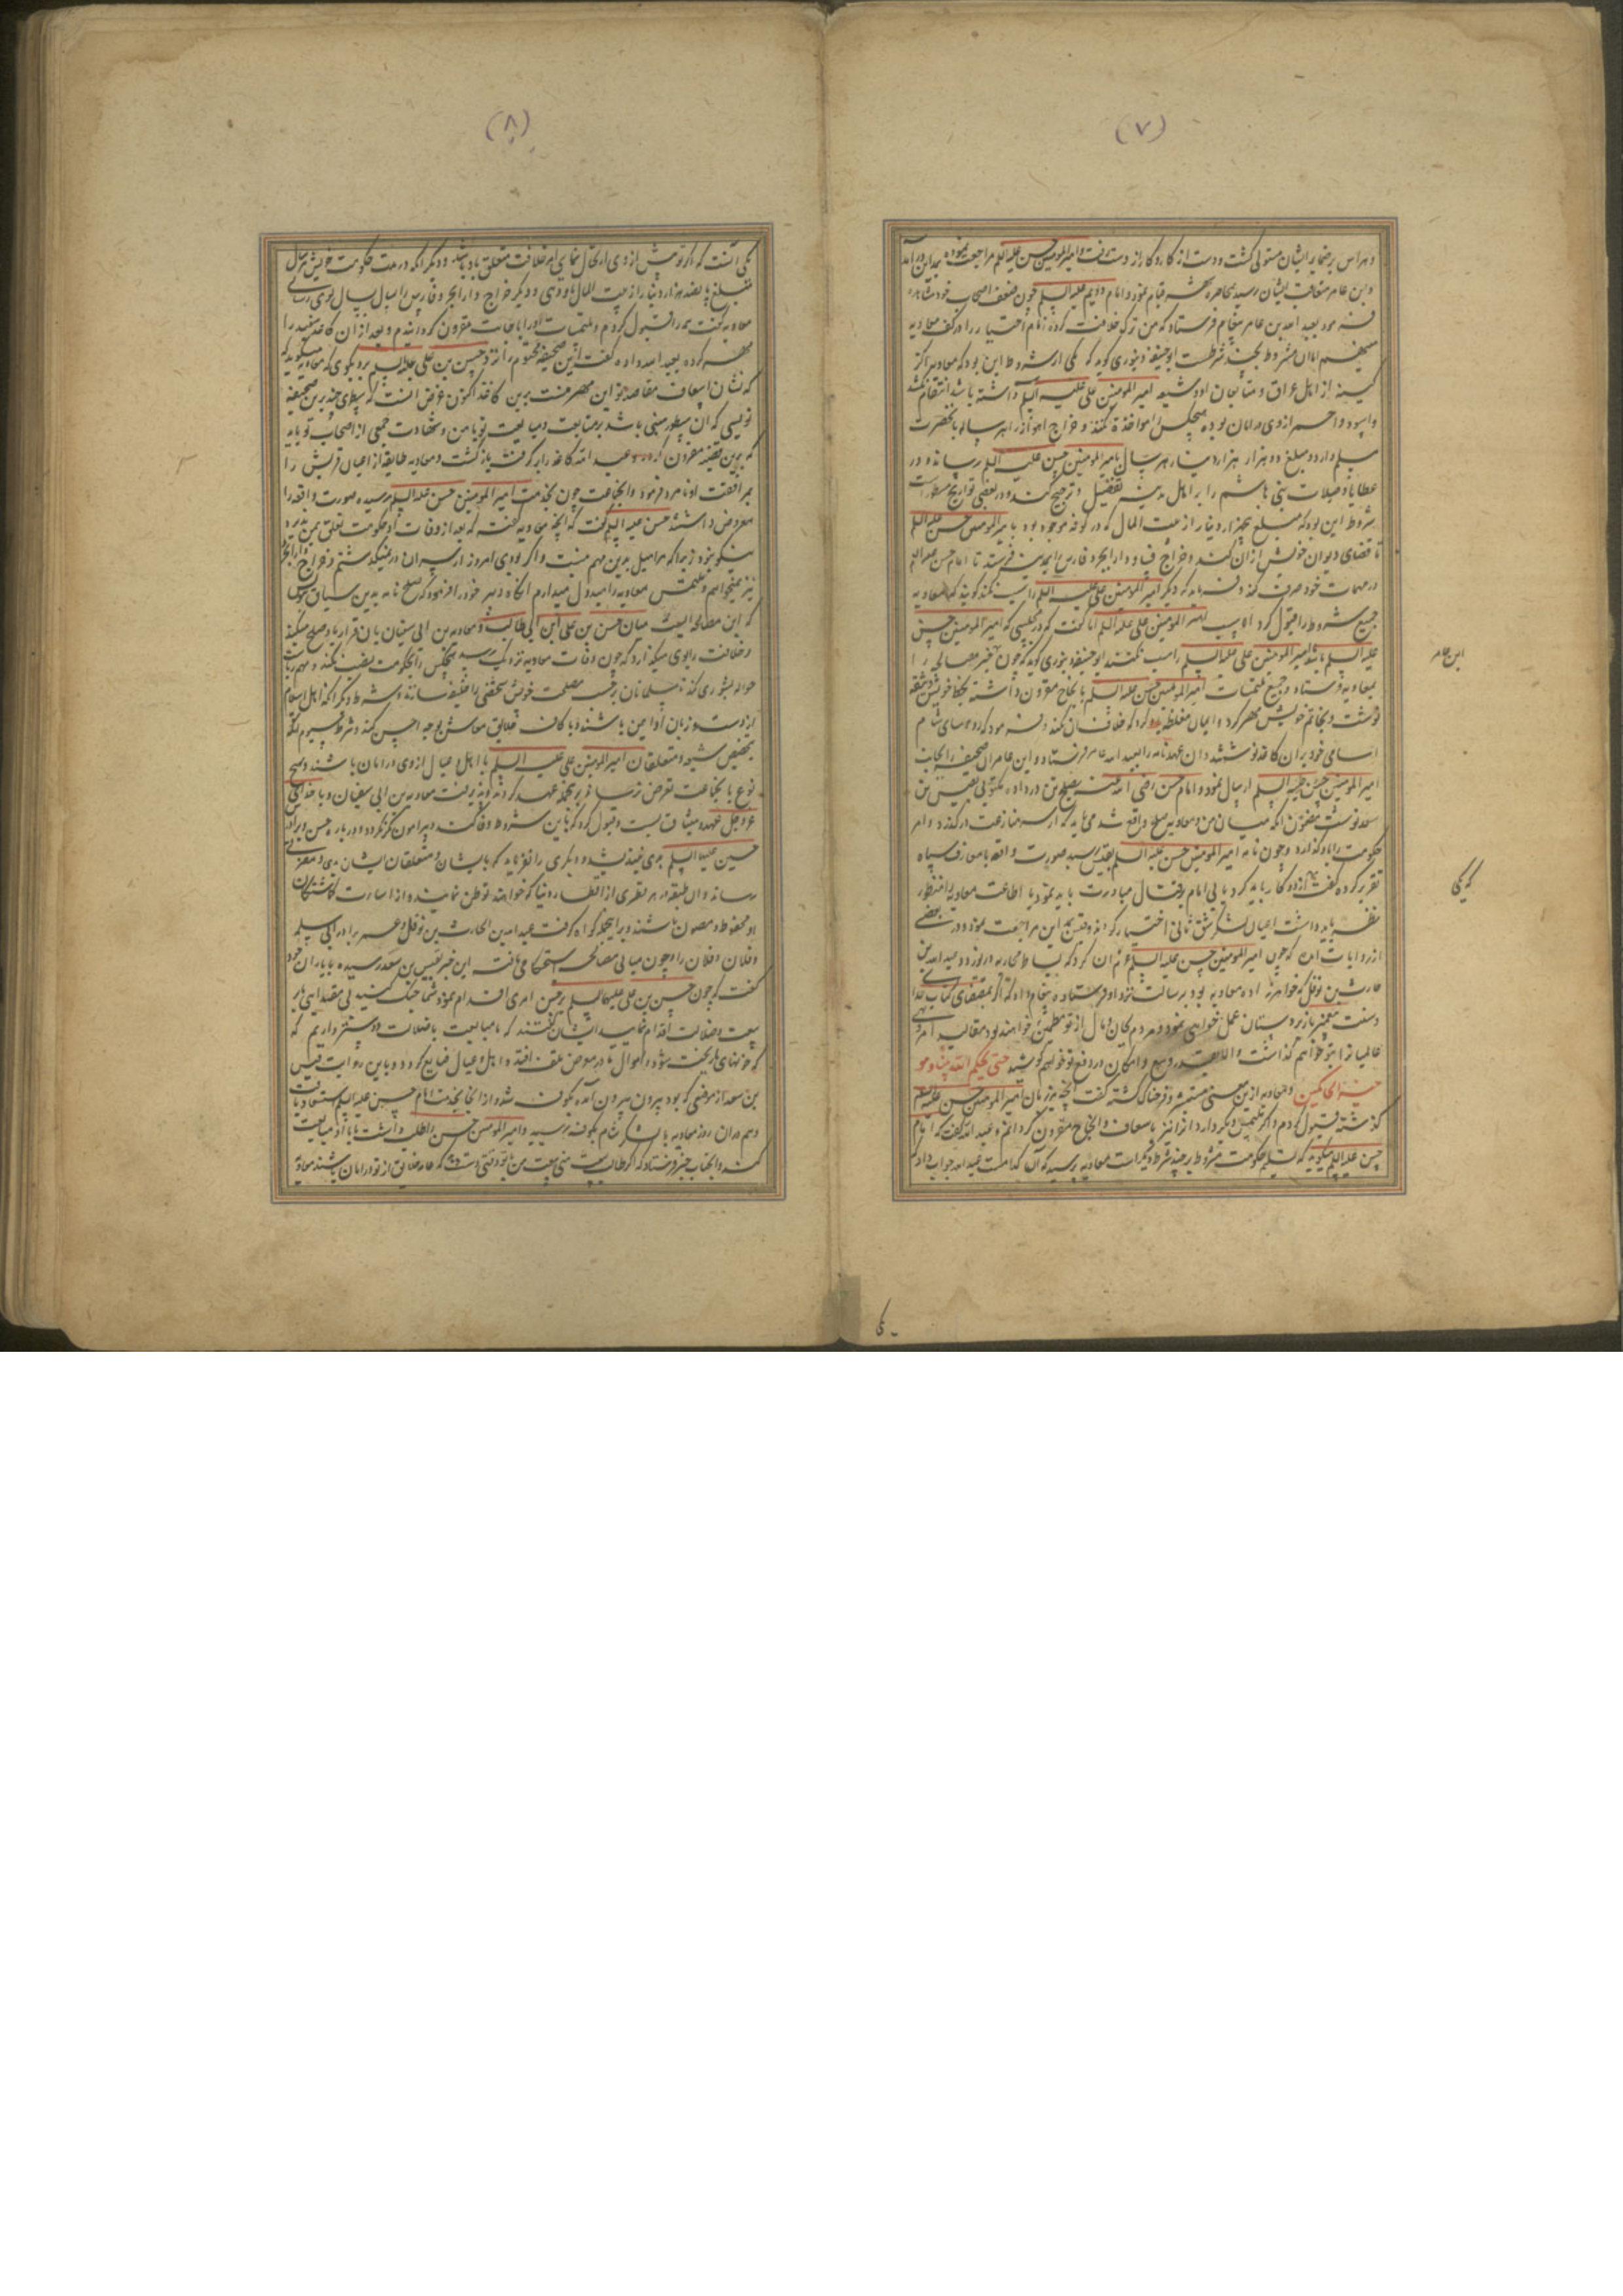 (٧)
و هراس بر ضمایر ایشان مستولی گشت و دست از کارزار و کار از دست رفت و امیر المومنین حسن علیه السلم مراجعت نموده بمداین درآمد
و ابن عامر متعاقب ایشان رسید بمحاصره شهر قیام نمود و امام دویم علیه السلم چون ضعف اصحاب خود مشاهده
فرمود بعبد الله بن عامر پیغام فرستاد که من ترک خلافت کرده زمام اختیار را در کف معاویه
می نهم اما آن مشروط بچند شرطست ابو حنیفه دینوری گوید که یکی از شروط این بود که معاویه از
کینه از اهل عراق و متابعان او و شیعه امیر المومنین علی علیه السلم داشته باشد انتقام نکشد
و اسود و احمر از وی در امان بوده هیچکس را مواخذه نکند و خراج اهواز را هر ساله بآنحضرت
مسلم دارد و مبلغ دو هزار هزار دینار هر سال بامیر المومنین حسن علیه السلم رساند و در
عطایا و صلات بنی هاشم را بر اهل مدینه تفضیل و ترجیح کند و در بعضی تواریخ مسطورست
شروط این بود که مبلغ پنجهزار دینار از بیت المال که در کوفه موجود بود بامیر المومنین حسن علیه السلم
تا قضای دیوان خویش از آن کند و خراج فسا و دارابجرد فارس را بمدینه فرستد تا امام حسن علیه السلم
در مهمات خود صرف کند و فرماید که دیگر امیر المومنین علی علیه السلم را سب نکند گویند که معاویه
جمیع شروط را قبول کرد الا سب امیر المومنین علی علیه السلم اما گفت که در مجلسی که امیر المومنین حسن
علیه السلم باشد امیر المومنین علی علیه السلم را سب نکنند ابو حنیفه دینوری گوید که چون خبر مصالحه را
بمعاویه فرستاد و جمیع ملتمسات امیر المومنین حسن علیه السلم بانجاح مقرون داشته بخط خویش وثیقه
نوشت و بخاتم خویش مهر کرد و ایمان مغلظه یاد کرد که خلاف آن نکند و فرمود که روسای شام
اسامی خود بر آن کاغذ نوشتند و آن عهدنامه را بعبید الله عامر فرستاد و ابن عامر آن صحیفه را بجانب
امیر المومنین حسن علیه السلم ارسال نمود و امام حسن رضی الله عنه بصلح تن در داده مکتوبی بقیس بن
سعد نوشت مضمون آنکه میان من و معاویه صلح واقع شد می باید که از سر منازعت درگذرد و امر
حکومت را باو گذارد و چون نامه امیر المومنین حسن علیه السلم بقیس رسید صورت واقعه با معارف سپاه
تقریر کرده گفت از دو کار باید کرد یا بی امام بر قتال مبادرت باید نمود یا اطاعت معاویه را منظور
نظر باید داشت اعیان لشکر شق ثانی اختیار کردند و قیس بمداین مراجعت نمود و در بعضی
از روایات آمده که چون امیر المومنین حسن علیه السلم عزم آن کرد که بساط محاربه در نوردد عبد الله بن
حارث بن نوفل که خواهرزاده معاویه بود برسالت نزد او فرستاد و پیغام داد که اگر بمقتضای کتاب خدا
و سنت پیغمبر با زیردستان عمل خواهی نمود و مردم بجان و مال از تو مطمئن خواهند بود مقالید امر
عالمیان را بتو خواهم گذاشت و الا بقدر وسع و امکان در دفع تو خواهم کوشید حتی یحکم الله بیننا وهو
خیر الحاکمین و معاویه ازین معنی مستبشر و فرحناک گشته گفت آنچه بر زبان امیر المومنین حسن علیه السلم
گذشته قبول کردم و اگر ملتمس دیگر دارد آنرا نیز باسعاف و انجاح مقرون گردانم و عبد الله گفت که امام
حسن علیه السلم میگوید که تسلیم حکومت مشروط بر چند شرط دیگر است معاویه پرسید که آن کدامست عبد الله جواب داد که
ابن عامر
که یکی
(٨)
یکی آنست که اگر تو پیش از وی ارتحال نمایی امر خلافت متعلق باو باشد و دیگر آنکه در مدت حکومت خویش هر سال
مبلغ پانصد هزار دینار از بیت المال باو دهی و دیگر خراج دارابجرد فارس را سال بسال بوی رسانی
معاویه گفت همه را قبول کردم و ملتمسات او را باجابت مقرون گردانیدم و بعد از آن کاغذ سفید را
مهر کرده بعبد الله داده گفت این صحیفه مختوم را نزد حسن بن علی علیه السلم برو بگوی که معاویه میگوید که
که نشان اسعاف مقاصد تو این مهر منست برین کاغذ اکنون غرض آنست که سطری چند برین صحیفه
نویسی که آن سطور مبنی باشد بر متابعت و مبایعت تو با من و شهادت جمعی از اصحاب تو باید
که برین قضیه مقرون گردد عبد الله کاغذ را بگرفت بازگشت و معاویه طایفه از اعیان قریش را
بمرافقت او نامزد فرمود و آنجماعت چون بخدمت امیر المومنین حسن علیه السلم رسیده صورت واقعه را
معروض داشتند حسن علیه السلم گفت که آنچه معاویه گفت که بعد از وفات او حکومت تعلق بمن پذیرد
نیکو نبود زیرا که مرا میل بدین مهم نیست و اگر بودی امروز از سر آن در نمیگذشتم و خراج دارابجرد
نیز نمیخواهم و ملتمس معاویه را مبذول میدارم آنگاه دبیر خود را فرمود که صلح نامه بدین سیاق نویس
که این مصالحه الیست میان حسن بن علی ابن ابی طالب و معاویه بن ابی سفیان بآن قرار یافت صلح میکند
و خلافت را بوی میگذارد که چون وفات معاویه نزدیک رسد هیچکس را بحکومت نصب نکند و مهم را
حواله بشوری کند تا مسلمانان بر حسب مصلحت خویش شخصی را خلیفه سازند و شرط دیگر آنکه اهل اسلام
از دست و زبان او ایمن باشند و با کافه خلایق معاش بوجه احسن کند و شرط سیوم آنکه
بتخصیص شیعه و متعلقان امیر المومنین علی علیه السلم با اهل و عیال از وی در امان باشند و بهیچ
نوع با آنجماعت تعرض نرساند برینجمله عهد کرد و پذیرفت معاویه بن ابی سفیان و با خدای
عز و جل عهد و میثاق بست و قبول کرد که باین شروط وفا کند و پیرامون مکر نگردد و درباره حسن و برادرش
حسین علیه السلم بدی نیندیشد و دیگری را نفرماید که بایشان و متعلقان ایشان بدی و مضرتی
رساند و آن طبقه در هر قطری از اقطار دنیا که خواهند توطن نمایند و از اساءت گماشتگان
او محفوظ و مصون باشند و برینجمله گواه گرفت عبد الله بن الحارث بن نوفل و عمر برادر ابی سلمه
و فلان و فلان را و چون مبانی مصالحه استحکام یافت این خبر بقیس بن سعد رسیده با یاران خود
گفت که چون حسن بن علی علیهما السلم برچنین امری اقدام نمود شما جنگ کنید بی مقتدایی یا بر
بیعت و ضلالت اقدام نمایید ایشان گفتند که ما مبایعت با ضلالت دوستر داریم که
که خونهای ما ریخته شود و اموال ما در معرض تلف افتد و اهل و عیال ضایع گردد و باین روایت قیس
بن سعد از موضعی که بود بیرون آمده بکوفه شد و از آنجا بخدمت امام حسن علیه السلم استسعاد یافت
و هم در آن روز معاویه با لشکر شام بکوفه رسید و امیر المومنین حسن را طلب داشت تا با او مبایعت
کند و آنجناب خبر فرستاد که اگر طالب بیعت منی بیعت من با تو وقتی دست دهد که عامه خلایق از تو در امان باشند معاویه